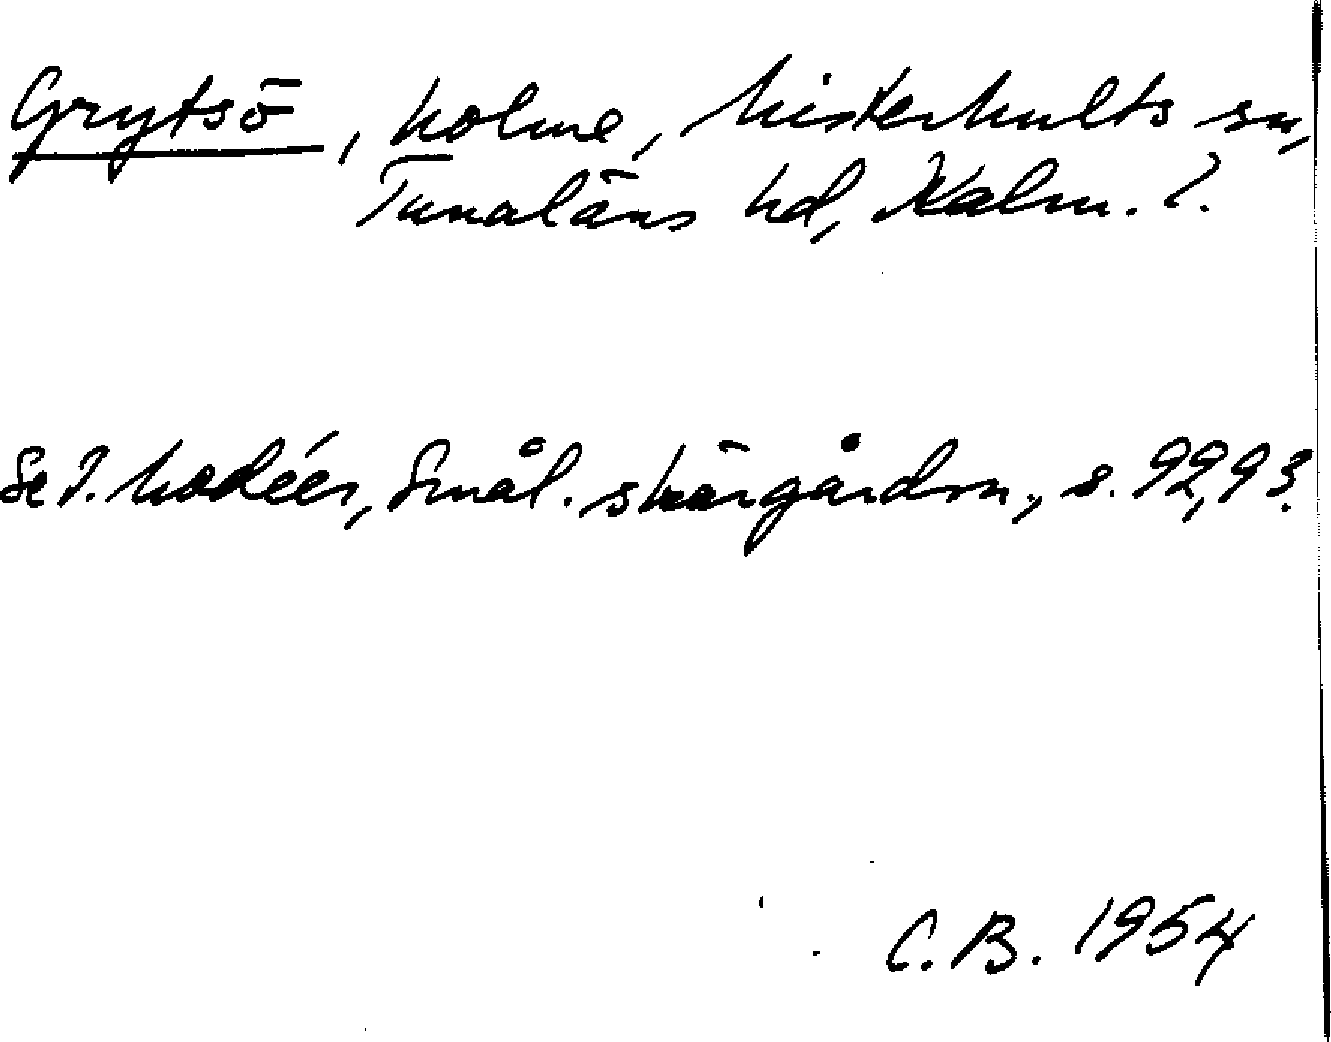 Grytsö, holme, Misterhults sn,
Tunaläns hd, Kalm. l.
Se I. Modéer, Smål. skärgårdsn., s. 92, 93.
C. B. 1954